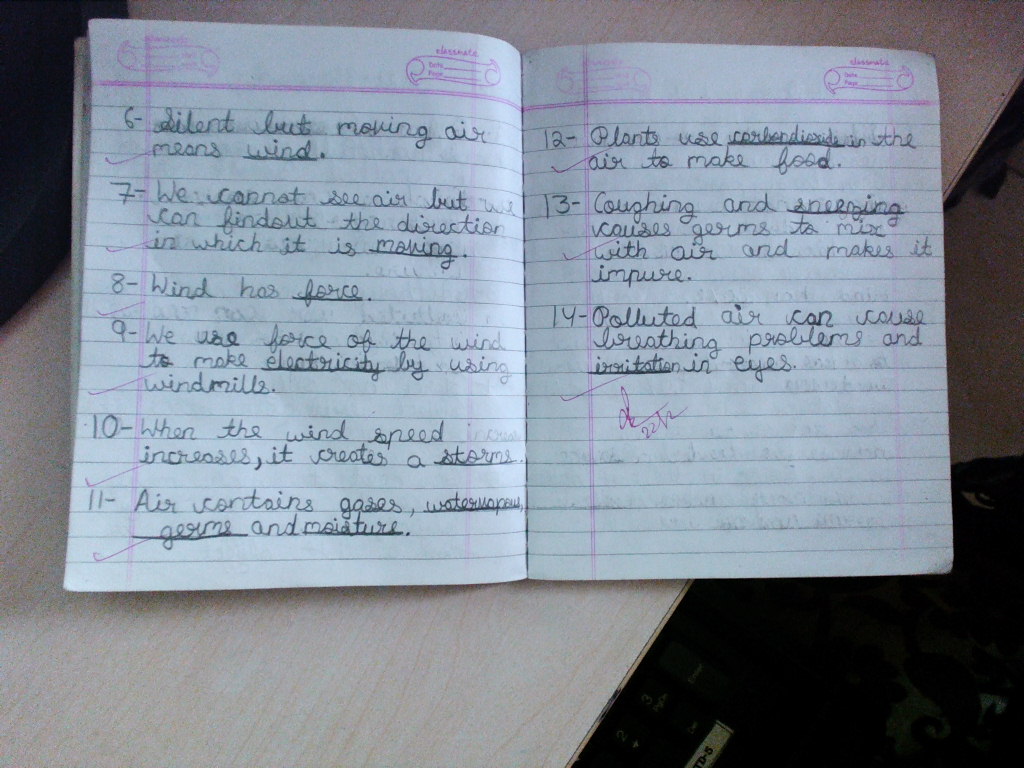 classmate
Date
Page
6- Silent but moving air
means wind.
7- We cannot see air but we
can findout the direction
in which it is moving.
8- Wind has force.
9- We use force of the wind
to make electricity by using
windmills.
10- When the wind speed
increases, it creates a storms.
11- Air contains gases, watervapour,
germs and moisture.
classmate
Date
Page
12- Plants use carbondioxide in the
air to make food.
13- Coughing and sneezing
causes germs to mix
with air and makes it
impure.
14- Polluted air can cause
breathing problems and
irritation in eyes.
22/12